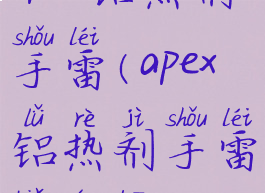 shǒu léi
手雷(apex
lǚ rè jì shǒu léi
铝热剂手雷